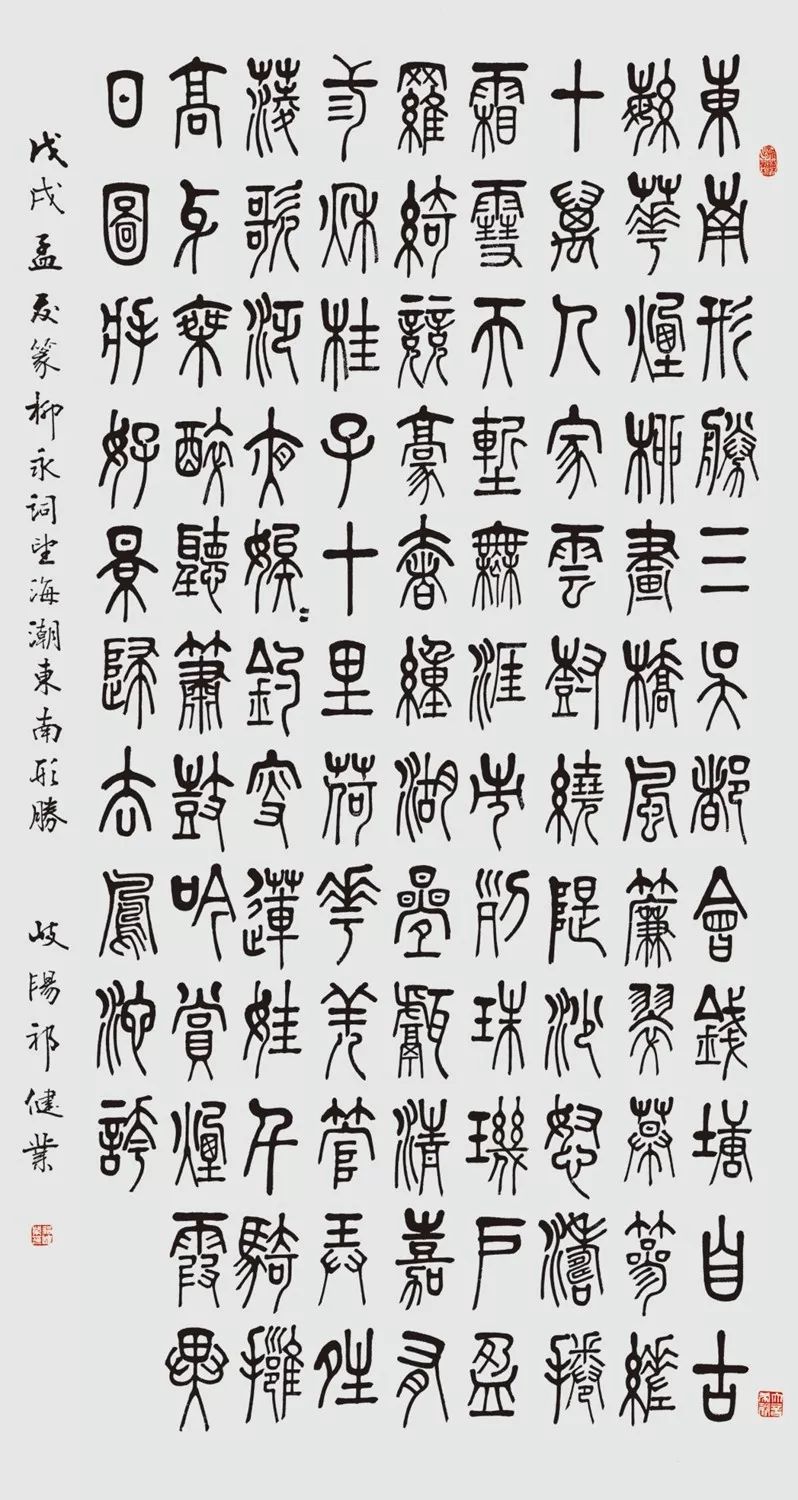 東南形勝三吳都會錢塘自古
緐華煙柳畫橋風簾翠幕篸縒
十萬人家雲樹繞隄沙怒濤捲
霜雪天塹無涯市列珠璣戶盈
羅綺競豪奢緟湖疊巘清嘉有
三秋桂子十里荷花羌管弄晴
菱歌泛夜娭〻釣叟蓮娃千騎擁
高牙乘醉聽簫鼓吟賞煙霞異
日圖將好景歸去鳳池誇
戊戌孟夏篆柳永詞望海潮東南形勝 岐陽祁健業